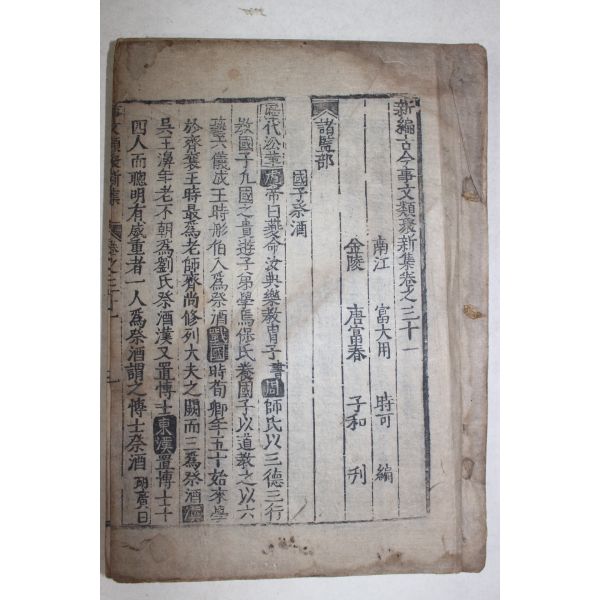 新編古今事文類聚新集卷之三十一
南江 富大用 時可 編
金陵 唐富春 子和 刊
諸監部
國子祭酒
歷代沿革 虞 帝曰夔命汝典樂教冑子 書 周 師氏以三德三行
教國子凡國之貴遊子弟學焉保氏養國子以道教之以六
藝六儀成王時彤伯入爲祭酒 戰國 時荀卿年五十始來學
於齊襄王時最爲老師齊尚修列大夫之闕而三爲祭酒 漢
吳王濞年老不朝爲劉氏祭酒漢又置博士 東漢 置博士十
四人而聰明有威重者一人爲祭酒謂之博士祭酒 胡廣曰
事文類聚新集 卷之三十一